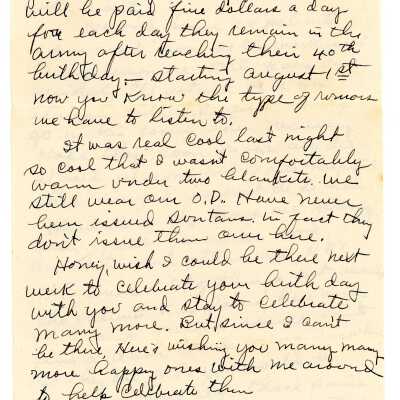 will be paid five dollars a day
for each day they remain in the
army after reaching their 40th
birthday - starting august 1st
now you know the type of rumors
we have to listen to.
It was real cool last night
so cool that I wasn't comfortably
warm under two blankets. we
still wear our O.D.. Have never
been issued suntans. in fact they
don't issue them over here.
Honey, wish I could be there next
week to celebrate your birth day
with you and stay to celebrate
many more. But since I can't
be there, Here's wishing you many many
more happy ones with me around
to help celebrate them